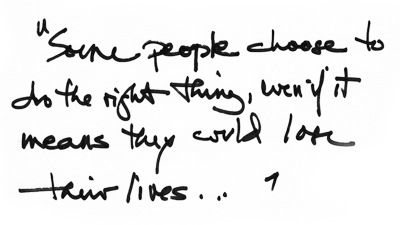 "Some people choose to
do the right thing, even if it
means they could lose
their lives... "